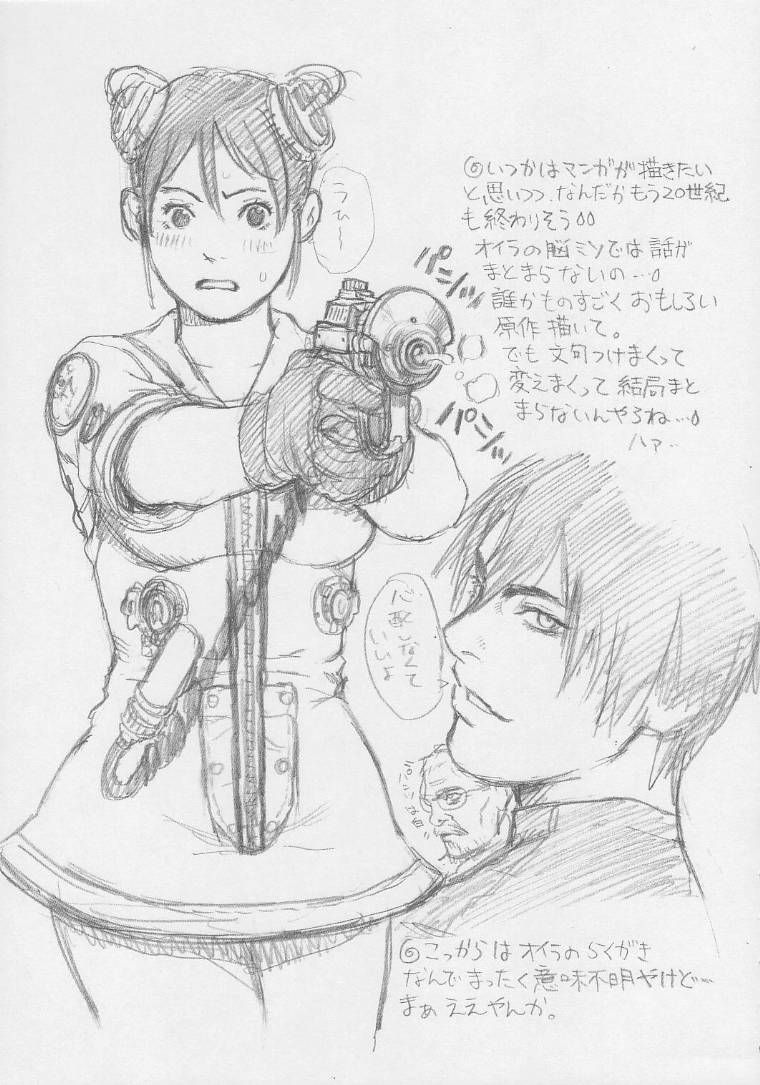 ◎いつかはマンガが描きたい
と思いつつ、なんだかもう20世紀
も終わりそう
オイラの脳ミソでは話が
まとまらないの…
誰かものすごくおもしろい
原作描いて。
でも文句つけまくって
変えまくって結局まと
まらないんやろね…
ハァ…
うひ〜
パンッ
パンッ
心配しなくて
いいよ
◎こっからはオイラのらくがき
なんでまったく意味不明やけど…
まぁええやんか。